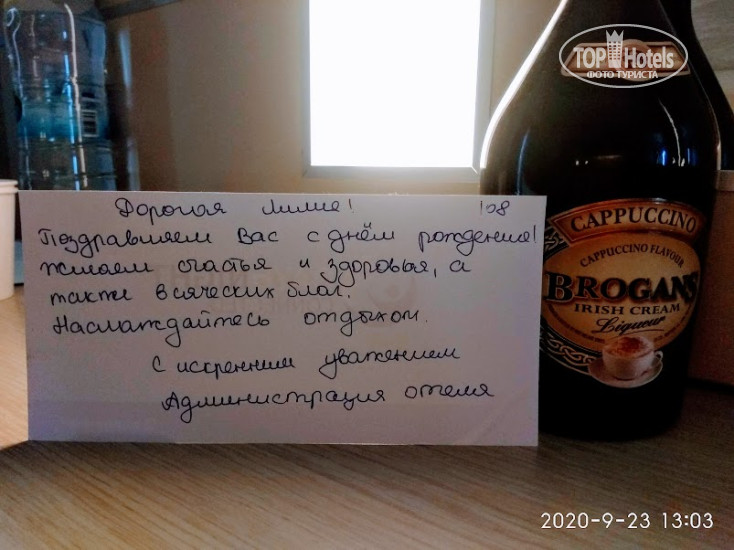 TOP Hotels
ФОТО ТУРИСТА
Дорогая Лилия! 108
Поздравляем Вас с днём рождения!
Желаем счастья и здоровья, а
также всяческих благ.
Наслаждайтесь отдыхом.
С искренним уважением
Администрация отеля
CAPPUCCINO
CAPPUCCINO FLAVOUR
BROGANS
IRISH CREAM
Liqueur
2020-9-23 13:03